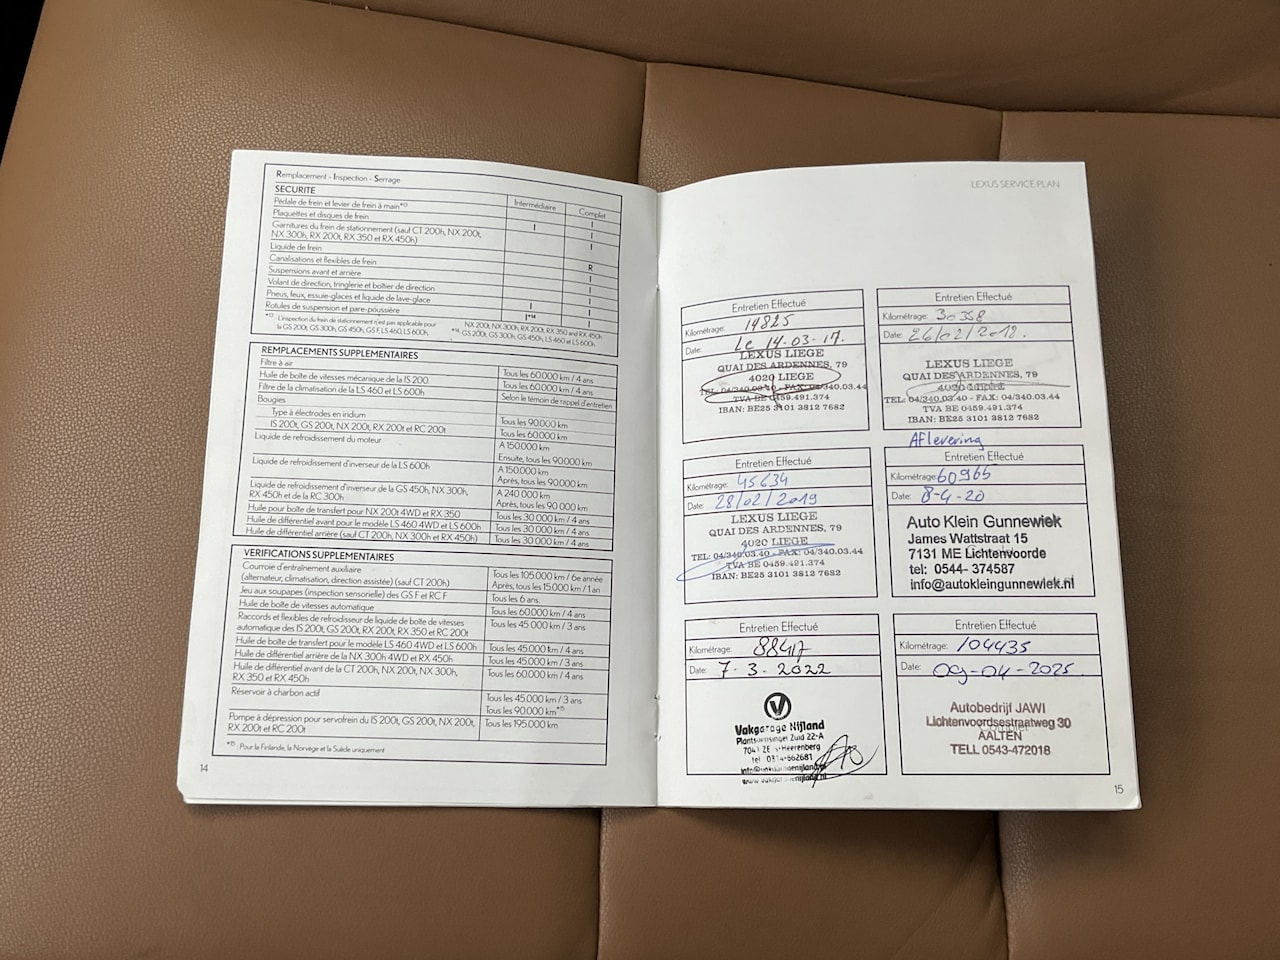 Remplacement - Inspection - Serrage
SECURITE
Intermédiaire Complet
Pédale de frein et levier de frein à main*13 I
Plaquettes et disques de frein I I
Garnitures du frein de stationnement (sauf CT 200h, NX 200t,
NX 300h, RX 200t, RX 350 et RX 450h) I
Liquide de frein R
Canalisations et flexibles de frein I
Suspensions avant et arrière I
Volant de direction, tringlerie et boîtier de direction I
Pneus, feux, essuie-glaces et liquide de lave-glace I I
Rotules de suspension et pare-poussière I*14 I
*13 L'inspection du frein de stationnement n'est pas applicable pour
la GS 200t, GS 300h, GS 450h, GS F, LS 460, LS 600h
*14 NX 200t, NX 300h, RX 200t, RX 350 and RX 450h
GS 200t, GS 300h, GS 450h, LS 460 et LS 600h
REMPLACEMENTS SUPPLEMENTAIRES
Filtre à air Tous les 60.000 km / 4 ans
Huile de boîte de vitesses mécanique de la IS 200. Tous les 60.000 km / 4 ans
Filtre de la climatisation de la LS 460 et LS 600h Selon le témoin de rappel d'entretien
Bougies
Type à électrodes en iridium Tous les 90.000 km
IS 200t, GS 200t, NX 200t, RX 200t et RC 200t Tous les 60.000 km
Liquide de refroidissement du moteur A 150.000 km
Ensuite, tous les 90.000 km
Liquide de refroidissement d'inverseur de la LS 600h A 150.000 km
Après, tous les 90.000 km
Liquide de refroidissement d'inverseur de la GS 450h, NX 300h,
RX 450h et de la RC 300h A 240 000 km
Après, tous les 90 000 km
Huile pour boîte de transfert pour NX 200t 4WD et RX 350 Tous les 30 000 km / 4 ans
Huile de différentiel avant pour le modèle LS 460 4WD et LS 600h Tous les 30 000 km / 4 ans
Huile de différentiel arrière (sauf CT 200h, NX 300h et RX 450h) Tous les 30 000 km / 4 ans
VERIFICATIONS SUPPLEMENTAIRES
Courroie d'entraînement auxiliaire
(alternateur, climatisation, direction assistée) (sauf CT 200h) Tous les 105.000 km / 6e année
Après, tous les 15.000 km / 1 an
Jeu aux soupapes (inspection sensorielle) des GS F et RC F Tous les 6 ans.
Huile de boîte de vitesses automatique Tous les 60.000 km / 4 ans
Raccords et flexibles de refroidisseur de liquide de boîte de vitesses
automatique des IS 200t, GS 200t, RX 200t, RX 350 et RC 200t Tous les 45 000 km / 3 ans
Huile de boîte de transfert pour le modèle LS 460 4WD et LS 600h Tous les 45.000 km / 4 ans
Huile de différentiel arrière de la NX 300h 4WD et RX 450h Tous les 45.000 km / 3 ans
Huile de différentiel avant de la CT 200h, NX 200t, NX 300h,
RX 350 et RX 450h Tous les 60.000 km / 4 ans
Réservoir à charbon actif Tous les 45.000 km / 3 ans
Tous les 90.000 km*15
Pompe à dépression pour servofrein du IS 200t, GS 200t, NX 200t,
RX 200t et RC 200t Tous les 195.000 km
*15 Pour la Finlande, la Norvège et la Suède uniquement
14
LEXUS SERVICE PLAN
Entretien Effectué
Kilométrage: 14825
Date: Le 14.03.17.
LEXUS LIEGE
QUAI DES ARDENNES, 79
4020 LIEGE
TEL: 04/340.03.40 - FAX: 04/340.03.44
TVA BE 0459.491.374
IBAN: BE25 3101 3812 7682
Entretien Effectué
Kilométrage: 30358
Date: 26/02/2018.
LEXUS LIEGE
QUAI DES ARDENNES, 79
4020
TEL: 04/340.03.40 - FAX: 04/340.03.44
TVA BE 0459.491.374
IBAN: BE25 3101 3812 7682
Entretien Effectué
Kilométrage: 45634
Date: 28/02/2019
LEXUS LIEGE
QUAI DES ARDENNES, 79
4020 LIEGE
TEL: 04/340.03.40 - FAX: 04/340.03.44
TVA BE 0459.491.374
IBAN: BE25 3101 3812 7682
Aflevering
Entretien Effectué
Kilométrage: 60965
Date: 8-4-20
Auto Klein Gunnewiek
James Wattstraat 15
7131 ME Lichtenvoorde
tel: 0544- 374587
info@autokleingunnewiek.nl
Entretien Effectué
Kilométrage: 88417
Date: 7-3-2022
Vakgarage Nijland
Plantsoensingel Zuid 22-A
7041 ZE s-Heerenberg
tel 0314-662681
info@vakgaragenijland.nl
www.vakgaragenijland.nl
Entretien Effectué
Kilométrage: 104435
Date: 09-04-2025.
Autobedrijf JAWI
Lichtenvoordsestraatweg 30
AALTEN
TELL 0543-472018
15